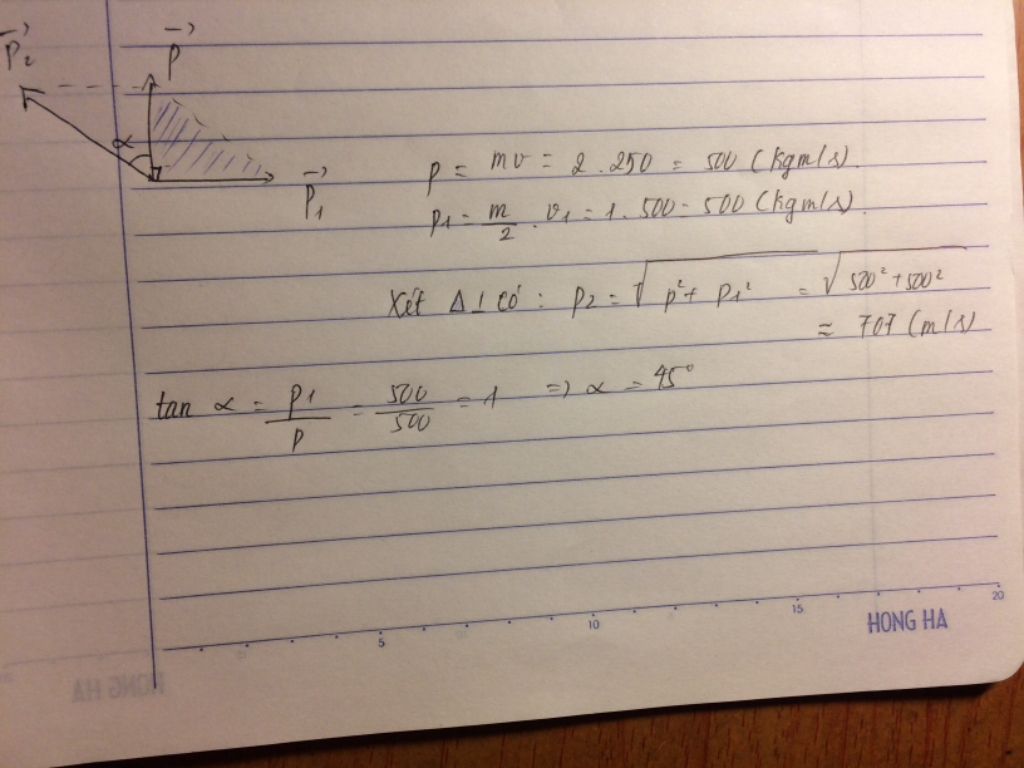 p⃗₂
p⃗
α
p⃗₁
p = mv = 2 . 250 = 500 (kgm/s).
p₁ = m/2 . v₁ = 1 . 500 = 500 (kgm/s).
Xét Δ⊥ có : p₂ = √(p² + p₁²) = √(500² + 500²)
≈ 707 (m/s)
tan α = p₁/p = 500/500 = 1 => α = 45°
5 10 15 20
HONG HA